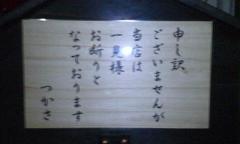 申し訳
ございませんが
当店は
一見様
お断りと
なっております
つかさ